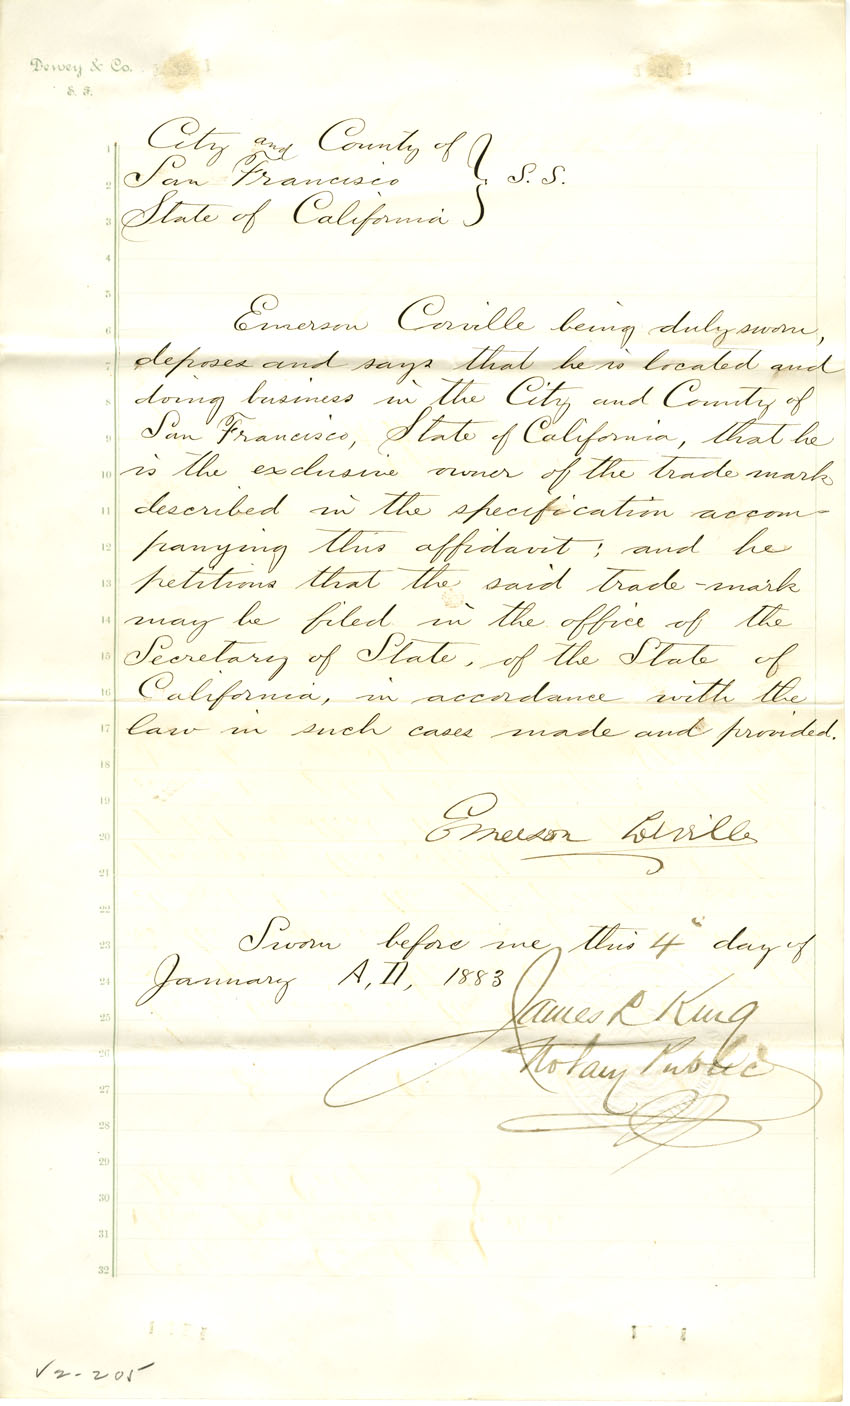 Dewey & Co.
S. F.
City and County of
San Francisco
State of California
} S. S.
Emerson Corville being duly sworn,
deposes and says that he is located and
doing business in the City and County of
San Francisco, State of California, that he
is the exclusive owner of the trade mark
described in the specification accom-
panying this affidavit; and he
petitions that the said trade-mark
may be filed in the office of the
Secretary of State, of the State of
California, in accordance with the
law in such cases made and provided.
Emerson Corville
Sworn before me this 4th day of
January A.D. 1883
James L King
Notary Public
1
2
3
4
5
6
7
8
9
10
11
12
13
14
15
16
17
18
19
20
21
22
23
24
25
26
27
28
29
30
31
32
√2-205